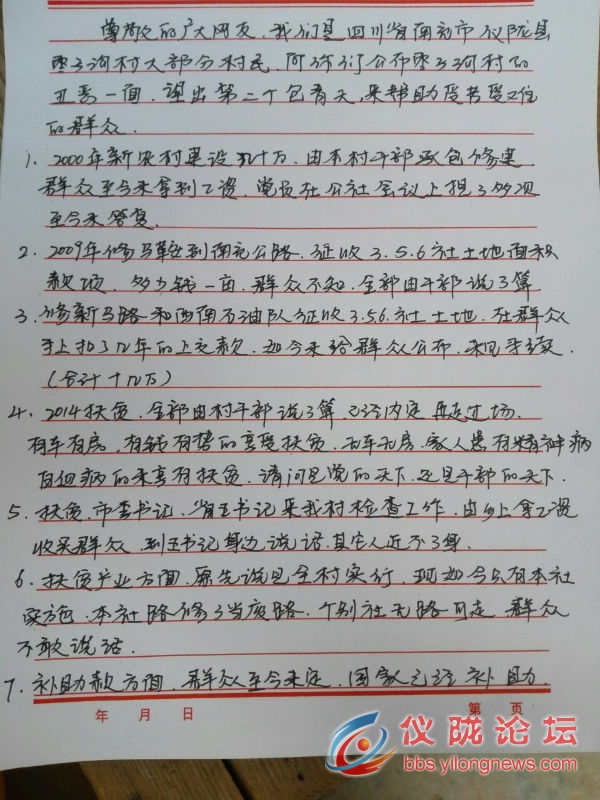 尊敬的广大网友,我们是四川省南充市仪陇县
枣子河村大部分村民,向你们公布枣子河村的
丑恶一面,望出第二个包青天,来帮助受苦受难
的群众.
1、2000年新农村建设几十万,由本村干部承包修建
群众至今未拿到工资,党员在公社会议上提了多次
至今未答复.
2、2009年修马鞍到南充公路,征收3.5.6社土地面积
款项,多少钱一亩,群众不知,全部由干部说了算
3、修新马路和西南石油队征收3.5.6.社土地,在群众
手上扣了几年的上交款,如今未给群众公布,未见
(合计十几万)
4、2014扶贫,全部由村干部说了算,已经内定,再走过场.
有车有房,有钱有势的享受扶贫,无车无房,家人患有精神病
的未享有扶贫,请问是谁的天下,还是干部的天下.
5、扶贫,市委书记,省王书记来我村检查工作,由乡上拿工资
收买群众,到王书记身边说话,其它人近不了身.
6、扶贫产业方面,原先说是全村实行,现如今只有本社
实施,本社路修了当废路,个别社无路可走,群众
不敢说话.
7、补助款方面,群众至今未定,国家已经补助.
年 月 日
第 页
仪陇论坛
bbs.yilongnews.com